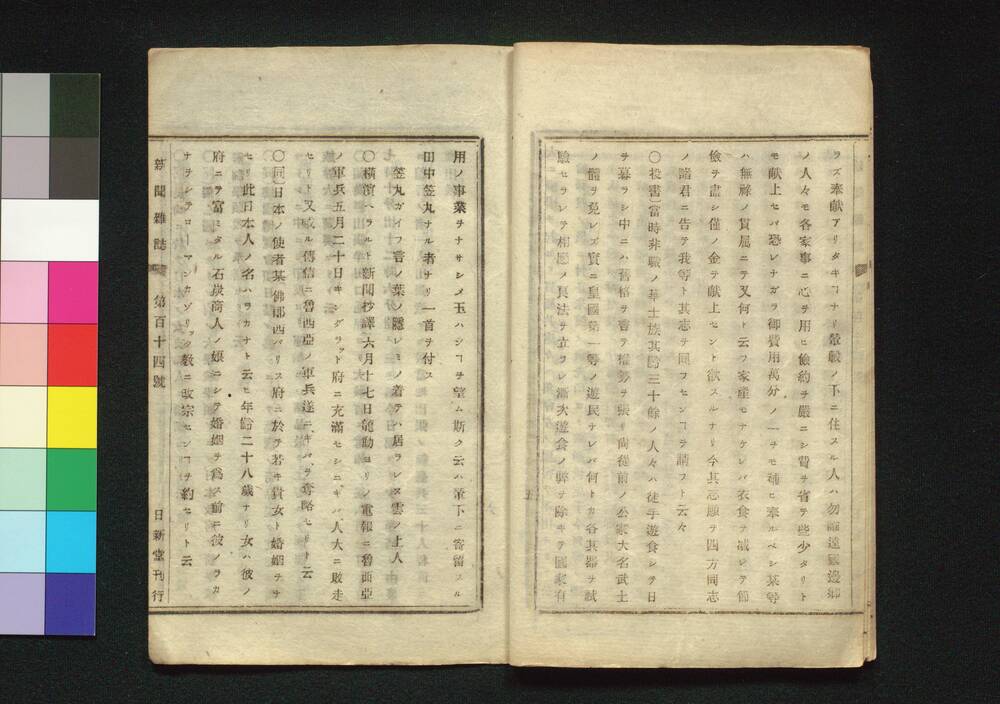 ラズ奉献アリタキヿナリ輦轂ノ下ニ住スル人ハ勿論遠國邊鄉
ノ人々モ各家事ニ心ヲ用ヒ儉約ヲ嚴ニシ費ヲ省テ些少タリト
モ献上セバ恐レナガラ御費用萬分ノ一ヲモ補ヒ奉ルベシ某等
ハ無祿ノ貫属ニテ又何ト云フ家産モナケレバ衣食ヲ减ジテ節
儉ヲ盡シ僅ノ金ヲ献上セント欲スルナリ今其志願ヲ四方同志
ノ諸君ニ告テ我等ト其志ヲ同フセンヿヲ請フト云々
〇投書)當時非職ノ華士族其齢三十餘ノ人々ハ徒手遊食シテ日
ヲ暮ラシ中ニハ舊格ヲ唱ヲ權勢ヲ張リ尚從前ノ公家大名武士
ノ體ヲ免レズ實ニ皇國第一等ノ遊民ナレバ何トカ各其器ヲ試
驗セラレテ相應ノ良法ヲ立ラレ漸次遊食ノ弊ヲ除キテ國家有
用ノ事業ヲナサシメ玉ハンヿヲ望ム斯ク云ハ輦下ニ寄留スル
田中笠丸ナル者ナリ一首ヲ付ス
笠丸ガイフ言ノ葉ノ隱レミノ着テハ居ラレヌ雲ノ上人
〇横濱ハラルト新聞抄譯六月十七日龍動ヨリノ電報ニ魯西亞
ノ軍兵五月二十日キシングラット府ニ充滿セシニギバ人大ニ敗走
セリト又或ル傳信ニ魯西亞ノ軍兵遂ニギバヲ奪略セリト云
〇同)日本ノ使者某佛郎西パリス府ニ於テ若キ貴女ト婚姻ヲナ
セリ此日本人ノ名ハラカナト云ヒ年齢二十八歳ナリ女ハ彼ノ
府ニテ富ミタル石炭商人ノ娘ニシテ婚姻ヲ爲ス前ニ彼ノラカ
ナヲシテローマンカソリック敎ニ改宗センヿヲ約セリト云
新聞雜誌 第百十四號 日新堂刊行